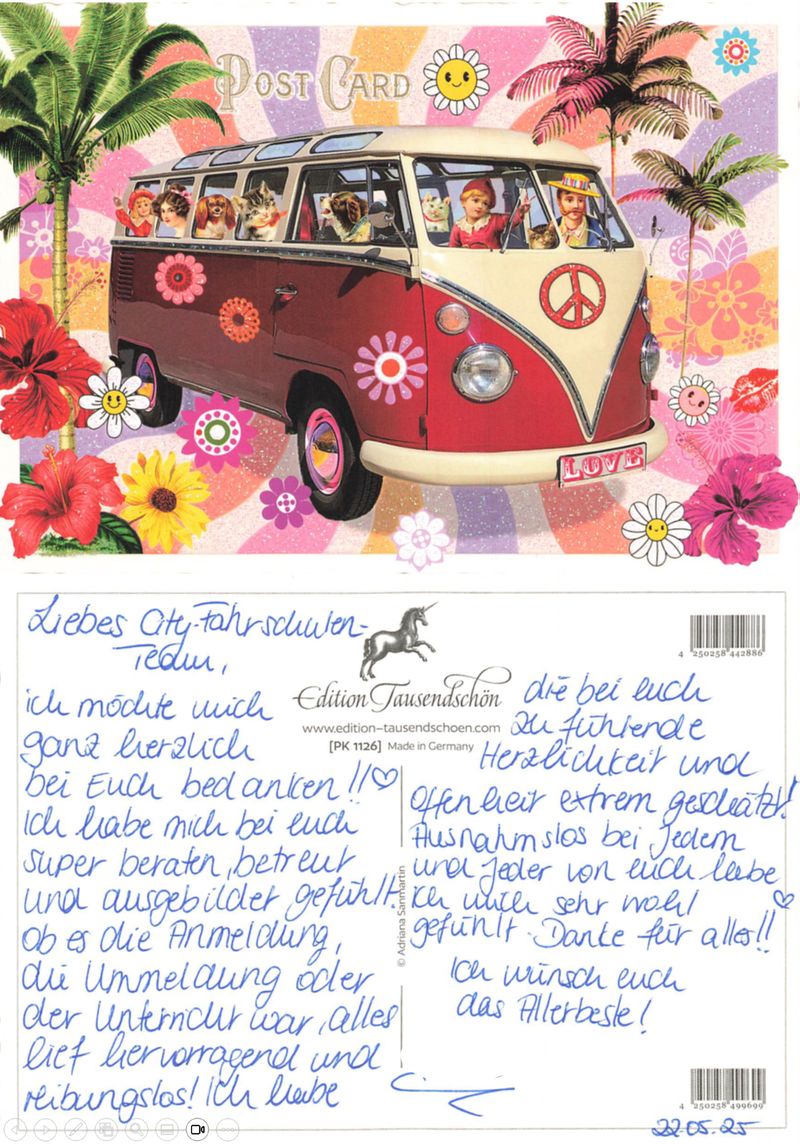 POST CARD
LOVE
Liebes City-Fahrschulen-
Team,
ich möchte mich
ganz herzlich
bei Euch bedanken!!♡
Ich habe mich bei euch
super beraten, betreut
und ausgebildet gefühlt.
Ob es die Anmeldung,
die Ummeldung oder
der Unterricht war, alles
lief hervorragend und
reibungslos! Ich habe
Edition Tausendschön
www.edition-tausendschoen.com
[PK 1126] Made in Germany
4 250258 442886
© Adriana Sanmartin
die bei euch
zu fühlende
Herzlichkeit und
Offenheit extrem geschätzt!
Ausnahmslos bei Jedem
und Jeder von euch habe
ich mich sehr wohl ♡
gefühlt. Danke für alles!!
Ich wünsch euch
das Allerbeste!
4 250258 499699
22.05.25